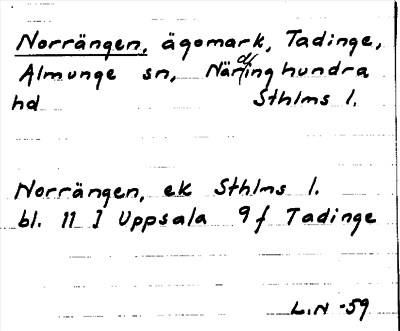 Norrängen, ägomark, Tadinge,
Almunge sn, Närdinghundra
hd Sthlms l.
Norrängen, ek Sthlms l.
bl. 11 I Uppsala 9 f Tadinge
L.N -59